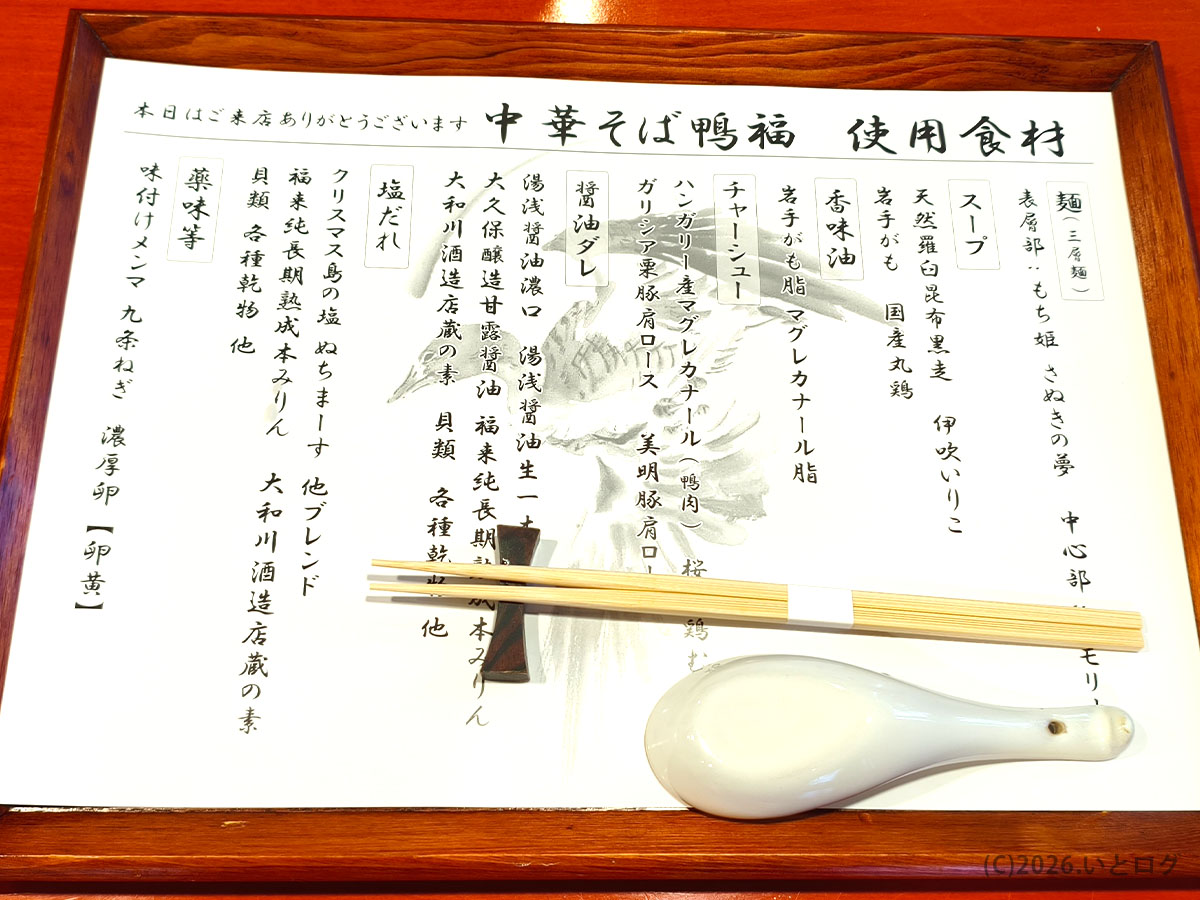 本日はご来店ありがとうございます 中華そば鴨福 使用食材
麺(三層麺)
表層部:もち姫 さぬきの夢 中心部 モリ
スープ
天然羅臼昆布黒走 伊吹いりこ
岩手がも 国産丸鶏
香味油
岩手がも脂 マグレカナール脂
チャーシュー
ハンガリー産マグレカナール(鴨肉) 桜 鶏む
ガリシア栗豚肩ロース 美明豚肩ロー
醤油ダレ
湯浅醤油濃口 湯浅醤油生一
大久保醸造甘露醤油 福来純長期熟成本みりん
大和川酒造店蔵の素 貝類 各種乾物 他
塩だれ
クリスマス島の塩 ぬちまーす 他ブレンド
福来純長期熟成本みりん 大和川酒造店蔵の素
貝類 各種乾物 他
薬味等
味付けメンマ 九条ねぎ 濃厚卵【卵黄】
(C)2026.いとログ